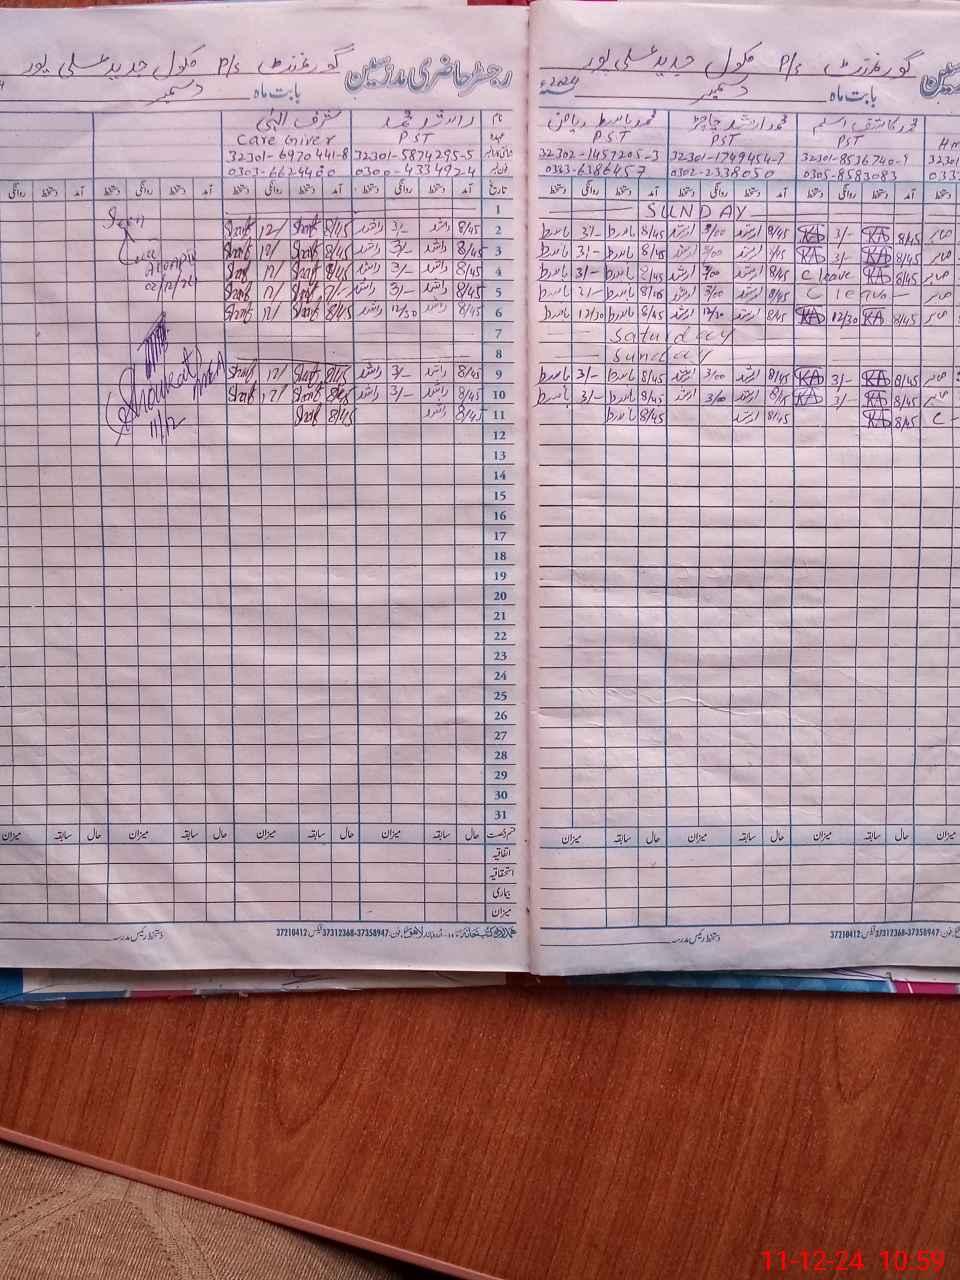 رجسٹر حاضری مدرسین گورنمنٹ P/S سکول جدید علی پور
بابت ماہ دسمبر
نام راشد محمد شرف الہی
عہدہ PST Care Giver
32301-5874295-5 32301-6970441-8
0300-4334924 0303-6624460
تاریخ آمد دستخط روانگی دستخط آمد دستخط روانگی دستخط آمد دستخط روانگی دستخط آمد دستخط
1
2 8/45 راشد 3/- راشد 8/45 Sharf 12/ Sharf Seen
3 8/45 راشد 3/- راشد 8/45 Sharf 12/ Sharf
4 8/45 راشد 3/- راشد 8/45 Sharf 12/ Sharf
02/12/24
5 8/45 راشد 3/- راشد Sharf 12/ Sharf
6 8/45 راشد 12/30 راشد 8/45 Sharf 12/ Sharf
7
8
9 8/45 راشد 3/- راشد 8/45 Sharf 12/ Sharf Shoukat
10 8/45 راشد 3/- راشد 8/45 Sharf 12/ Sharf
11 8/45 راشد 8/45 Sharf 11/12
12
13
14
15
16
17
18
19
20
21
22
23
24
25
26
27
28
29
30
31
قسم رخصت حال سابقہ میزان حال سابقہ میزان حال سابقہ میزان حال سابقہ میزان
اتفاقیہ
استحقاقیہ
بیماری
میزان
فون: 37358947-37312368 فیکس 37210412 دستخط رئیس مدرسہ
مدرسین گورنمنٹ P/S سکول جدید علی پور
بابت ماہ دسمبر 2024ء
محمد کاشف اسلم محمد ارشد محمد باسط ریاض
PST PST PST
32301-8536740-9 32301-1749454-7 32302-1457205-3
0305-8583083 0302-2338050 0343-6386457
آمد دستخط روانگی دستخط آمد دستخط روانگی دستخط آمد دستخط روانگی دستخط
SUNDAY
8/45 KA 3/- KA 8/45 ارشد 3/00 ارشد 8/45 باسط 3/- باسط
8/45 KA 3/- KA 8/45 ارشد 3/00 ارشد 8/45 باسط 3/- باسط
8/45 KA C leave 8/45 ارشد 3/00 ارشد 8/45 باسط 3/- باسط
C leave 8/45 ارشد 3/00 ارشد 8/45 باسط 3/- باسط
8/45 KA 12/30 KA 8/45 ارشد 12/30 ارشد 8/45 باسط 12/30 باسط
Saturday
Sunday
8/45 KA 3/- KA 8/45 ارشد 3/00 ارشد 8/45 باسط 3/- باسط
8/45 KA 3/- KA 8/45 ارشد 3/00 ارشد 8/45 باسط 3/- باسط
C- 8/45 KA 8/45 ارشد 8/45 باسط
میزان حال سابقہ میزان حال سابقہ میزان حال سابقہ میزان
فون: 37358947-37312368 فیکس 37210412 دستخط رئیس مدرسہ
11-12-24 10:59